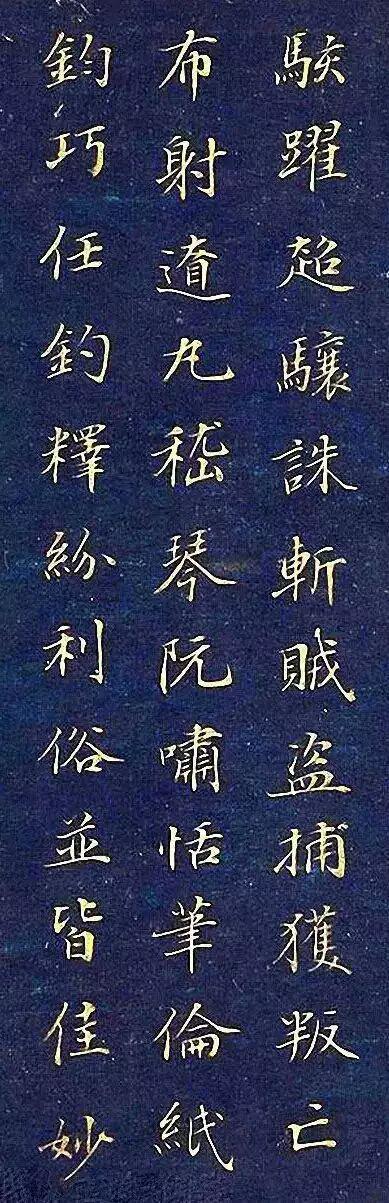 駭躍超驤誅斬賊盗捕獲叛亡
布射遼丸嵇琴阮嘯恬筆倫紙
鈞巧任釣釋紛利俗並皆佳妙